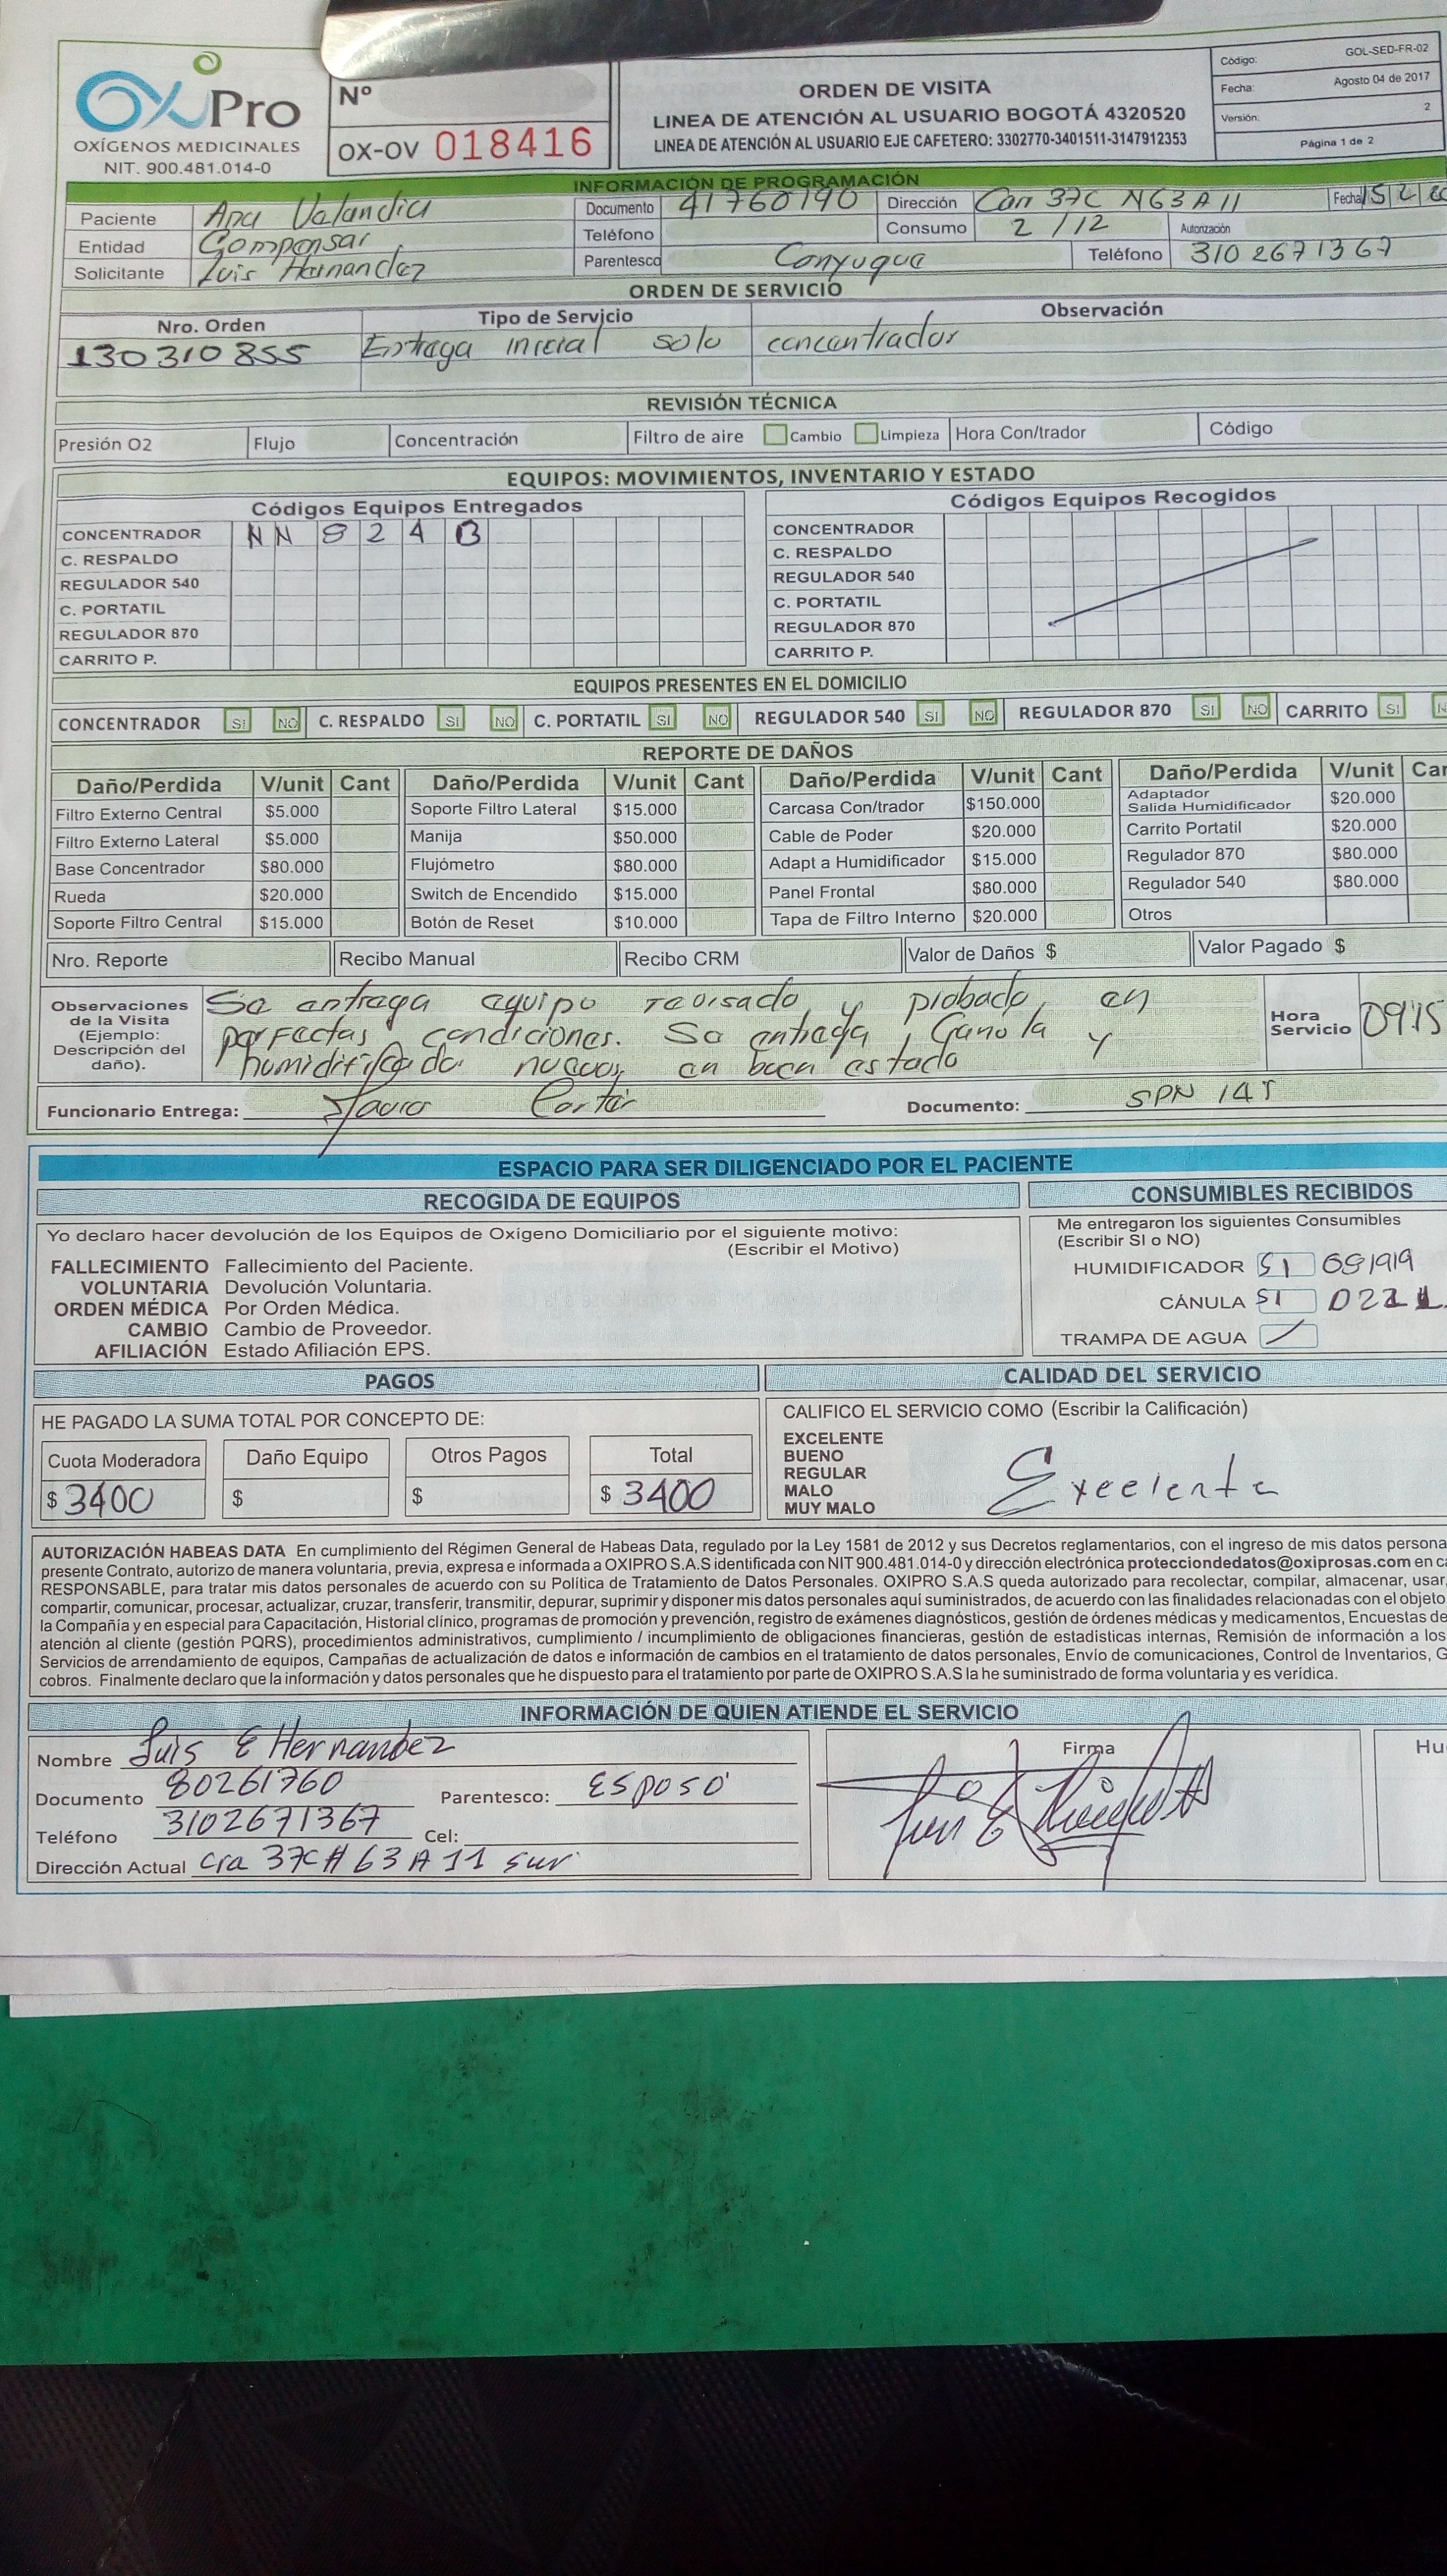 OxiPro
OXÍGENOS MEDICINALES
NIT. 900.481.014-0
Nº
OX-OV 018416
ORDEN DE VISITA
LINEA DE ATENCIÓN AL USUARIO BOGOTÁ 4320520
LINEA DE ATENCIÓN AL USUARIO EJE CAFETERO: 3302770-3401511-3147912353
Código: GOL-SED-FR-02
Fecha: Agosto 04 de 2017
Versión: 2
Página 1 de 2
INFORMACIÓN DE PROGRAMACIÓN
Paciente Ana Velandia Documento 41760190 Dirección Carr 37C N63A11 Fecha 15
Entidad Compensar Teléfono Consumo 2 /12 Autorización
Solicitante Luis Hernandez Parentesco Conyugue Teléfono 310 2671367
ORDEN DE SERVICIO
Nro. Orden Tipo de Servicio Observación
130310855 Entrega inicial solo concentrador
REVISIÓN TÉCNICA
Presión O2 Flujo Concentración Filtro de aire Cambio Limpieza Hora Con/trador Código
EQUIPOS: MOVIMIENTOS, INVENTARIO Y ESTADO
Códigos Equipos Entregados Códigos Equipos Recogidos
CONCENTRADOR N N 8 2 4 B CONCENTRADOR
C. RESPALDO C. RESPALDO
REGULADOR 540 REGULADOR 540
C. PORTATIL C. PORTATIL
REGULADOR 870 REGULADOR 870
CARRITO P. CARRITO P.
EQUIPOS PRESENTES EN EL DOMICILIO
CONCENTRADOR SI NO C. RESPALDO SI NO C. PORTATIL SI NO REGULADOR 540 SI NO REGULADOR 870 SI NO CARRITO SI
REPORTE DE DAÑOS
Daño/Perdida V/unit Cant Daño/Perdida V/unit Cant Daño/Perdida V/unit Cant Daño/Perdida V/unit Can
Filtro Externo Central $5.000 Soporte Filtro Lateral $15.000 Carcasa Con/trador $150.000 Adaptador Salida Humidificador $20.000
Filtro Externo Lateral $5.000 Manija $50.000 Cable de Poder $20.000 Carrito Portatil $20.000
Base Concentrador $80.000 Flujómetro $80.000 Adapt a Humidificador $15.000 Regulador 870 $80.000
Rueda $20.000 Switch de Encendido $15.000 Panel Frontal $80.000 Regulador 540 $80.000
Soporte Filtro Central $15.000 Botón de Reset $10.000 Tapa de Filtro Interno $20.000 Otros
Nro. Reporte Recibo Manual Recibo CRM Valor de Daños $ Valor Pagado $
Observaciones de la Visita (Ejemplo: Descripción del daño).
Se entrega equipo revisado y probado, en
perfectas condiciones. Se entrega, Canola y
humidificado. nuevos en buen estado
Hora Servicio 0915
Funcionario Entrega: Documento: SPN 14J
ESPACIO PARA SER DILIGENCIADO POR EL PACIENTE
RECOGIDA DE EQUIPOS
Yo declaro hacer devolución de los Equipos de Oxígeno Domiciliario por el siguiente motivo:
(Escribir el Motivo)
FALLECIMIENTO Fallecimiento del Paciente.
VOLUNTARIA Devolución Voluntaria.
ORDEN MÉDICA Por Orden Médica.
CAMBIO Cambio de Proveedor.
AFILIACIÓN Estado Afiliación EPS.
CONSUMIBLES RECIBIDOS
Me entregaron los siguientes Consumibles
(Escribir SI o NO)
HUMIDIFICADOR SI 081919
CÁNULA SI
TRAMPA DE AGUA
PAGOS
HE PAGADO LA SUMA TOTAL POR CONCEPTO DE:
Cuota Moderadora Daño Equipo Otros Pagos Total
$ 3400 $ $ $ 3400
CALIDAD DEL SERVICIO
CALIFICO EL SERVICIO COMO (Escribir la Calificación)
EXCELENTE
BUENO
REGULAR
MALO
MUY MALO
Exeelente
AUTORIZACIÓN HABEAS DATA En cumplimiento del Régimen General de Habeas Data, regulado por la Ley 1581 de 2012 y sus Decretos reglamentarios, con el ingreso de mis datos persona
presente Contrato, autorizo de manera voluntaria, previa, expresa e informada a OXIPRO S.A.S identificada con NIT 900.481.014-0 y dirección electrónica protecciondedatos@oxiprosas.com en c
RESPONSABLE, para tratar mis datos personales de acuerdo con su Política de Tratamiento de Datos Personales. OXIPRO S.A.S queda autorizado para recolectar, compilar, almacenar, usar,
compartir, comunicar, procesar, actualizar, cruzar, transferir, transmitir, depurar, suprimir y disponer mis datos personales aquí suministrados, de acuerdo con las finalidades relacionadas con el objeto
la Compañía y en especial para Capacitación, Historial clínico, programas de promoción y prevención, registro de exámenes diagnósticos, gestión de órdenes médicas y medicamentos, Encuestas de
atención al cliente (gestión PQRS), procedimientos administrativos, cumplimiento / incumplimiento de obligaciones financieras, gestión de estadísticas internas, Remisión de información a los
Servicios de arrendamiento de equipos, Campañas de actualización de datos e información de cambios en el tratamiento de datos personales, Envío de comunicaciones, Control de Inventarios, G
cobros. Finalmente declaro que la información y datos personales que he dispuesto para el tratamiento por parte de OXIPRO S.A.S la he suministrado de forma voluntaria y es verídica.
INFORMACIÓN DE QUIEN ATIENDE EL SERVICIO
Nombre Luis E Hernandez
Documento 80261760 Parentesco: ESposo
Teléfono 3102671367 Cel:
Dirección Actual cra 37C # 63 A 11 sur
Firma
Hu